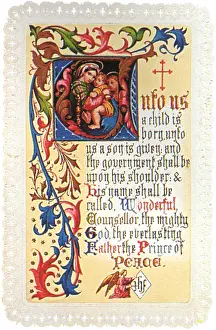 Unto us
a child is
born, unto
us a son is given, and
the government shall be
upon his shoulder: &
his name shall be
called, Wonderful,
Counsellor, the mighty
God, the everlasting
Father the Prince of
PEACE.
ihs